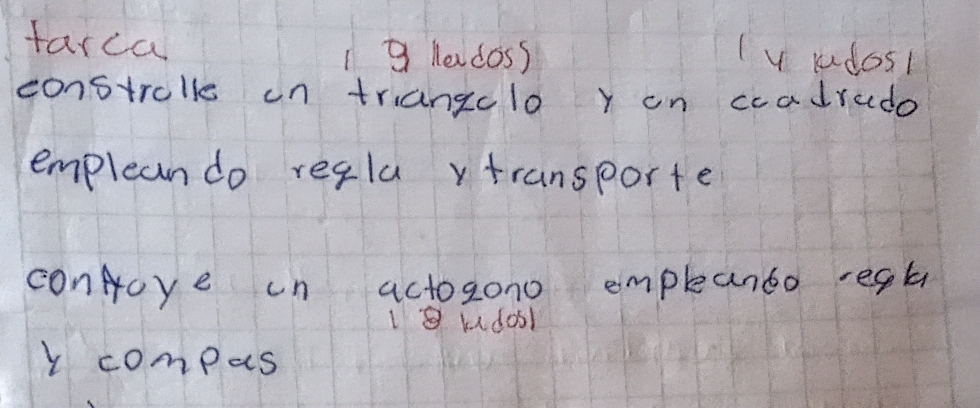 tarea ( 3 lados) (4 lados)
construlle un triangulo y un cuadrado
empleando regla y transporte
contruye un actogono empleando regla
( 8 lados)
y compas